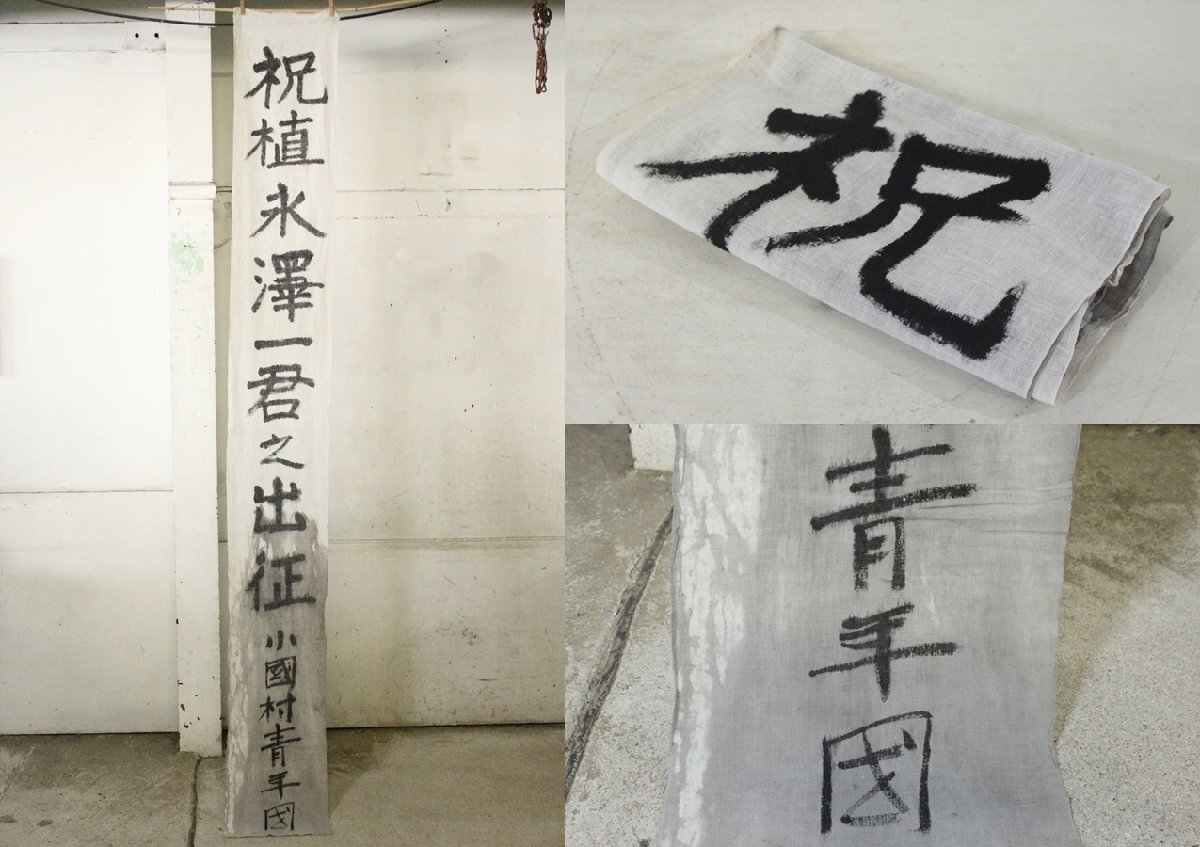 祝植永澤一君之出征
小國村青年國
祝
青年國